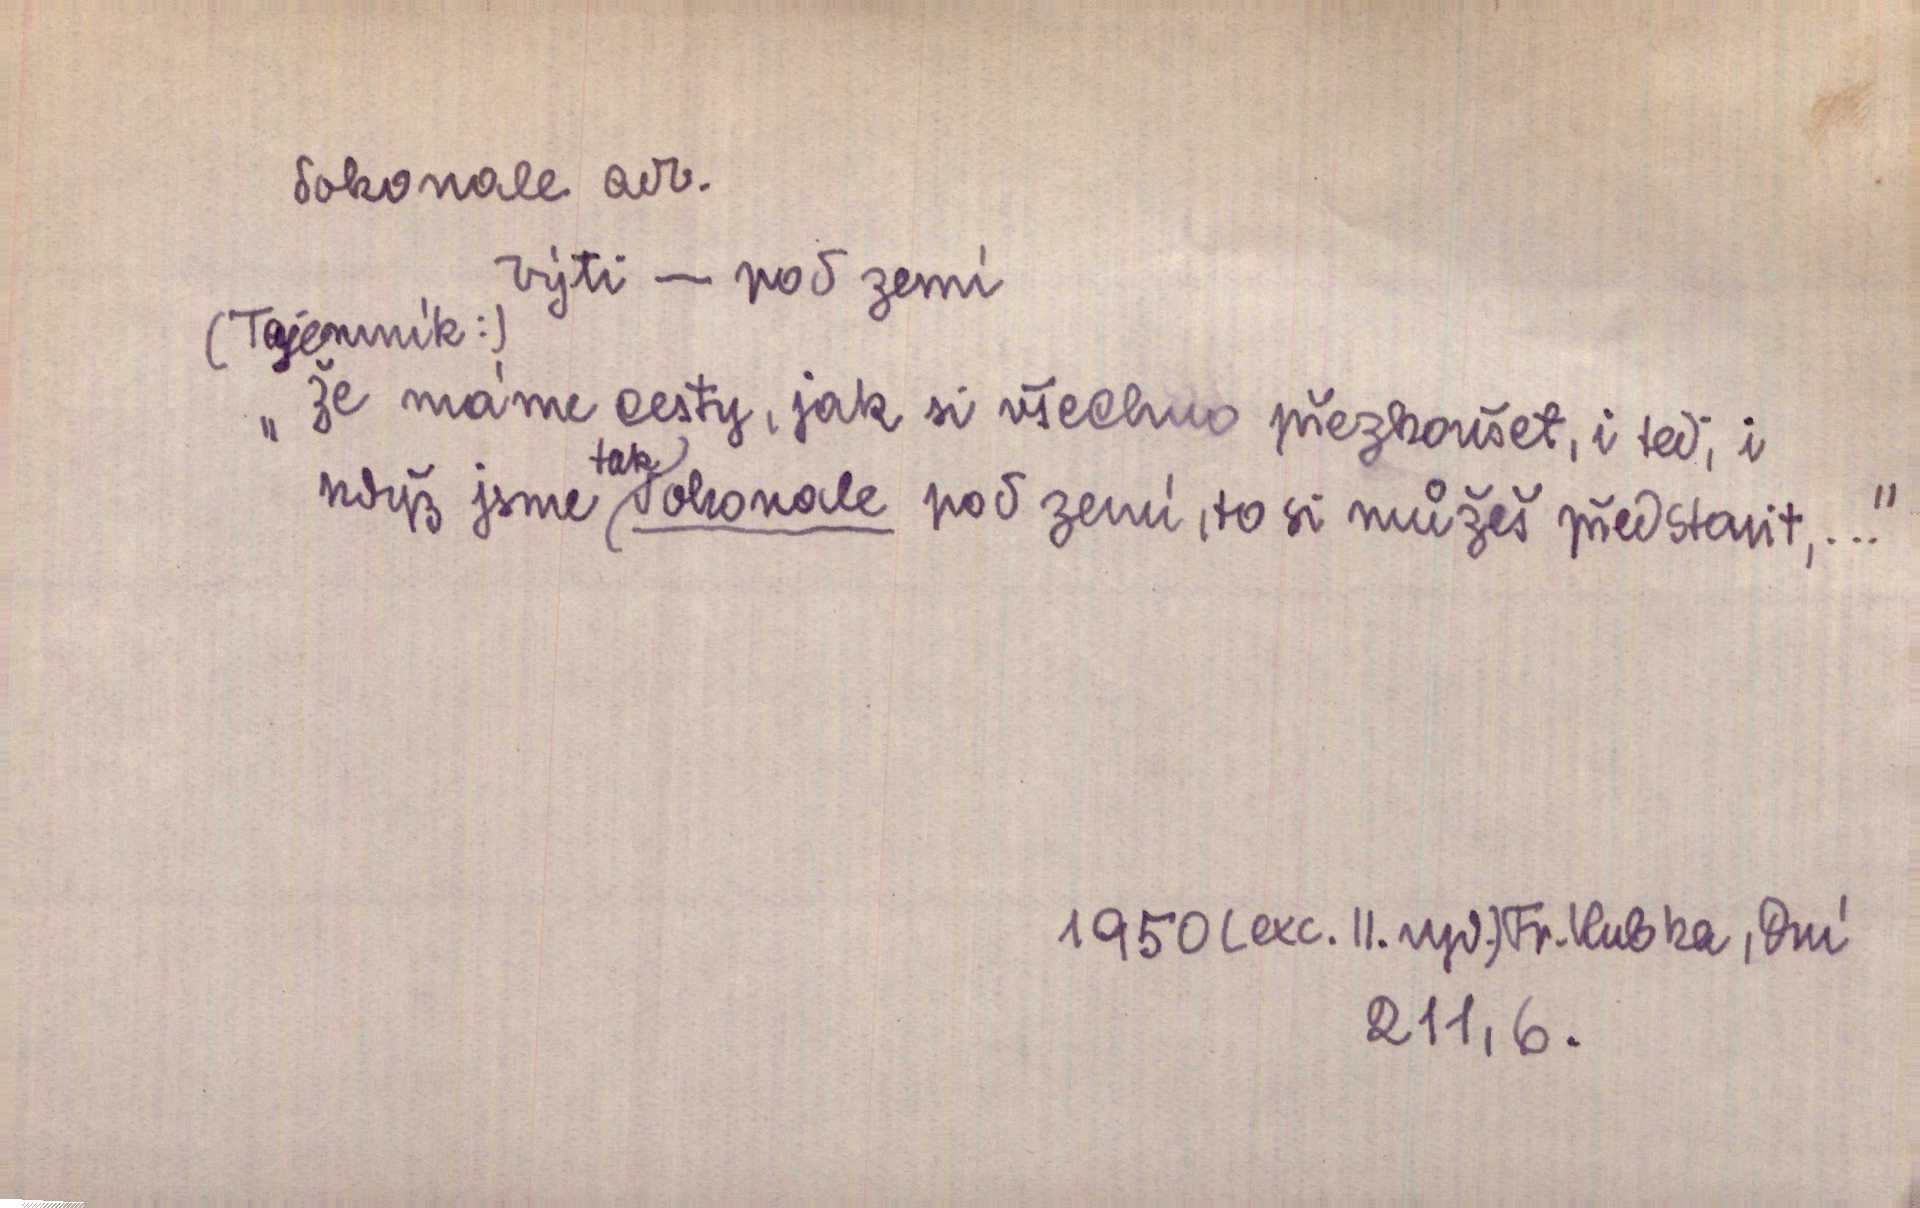 dokonale adv.
býti — pod zemí
(Tajemník:)
„Že máme cesty, jak si všechno přezkoušet, i teď, i
když jsme tak dokonale pod zemí, to si můžeš představit,..."
1950 (exc. II. vyd.) Fr. Kubka, Dní
211, 6.